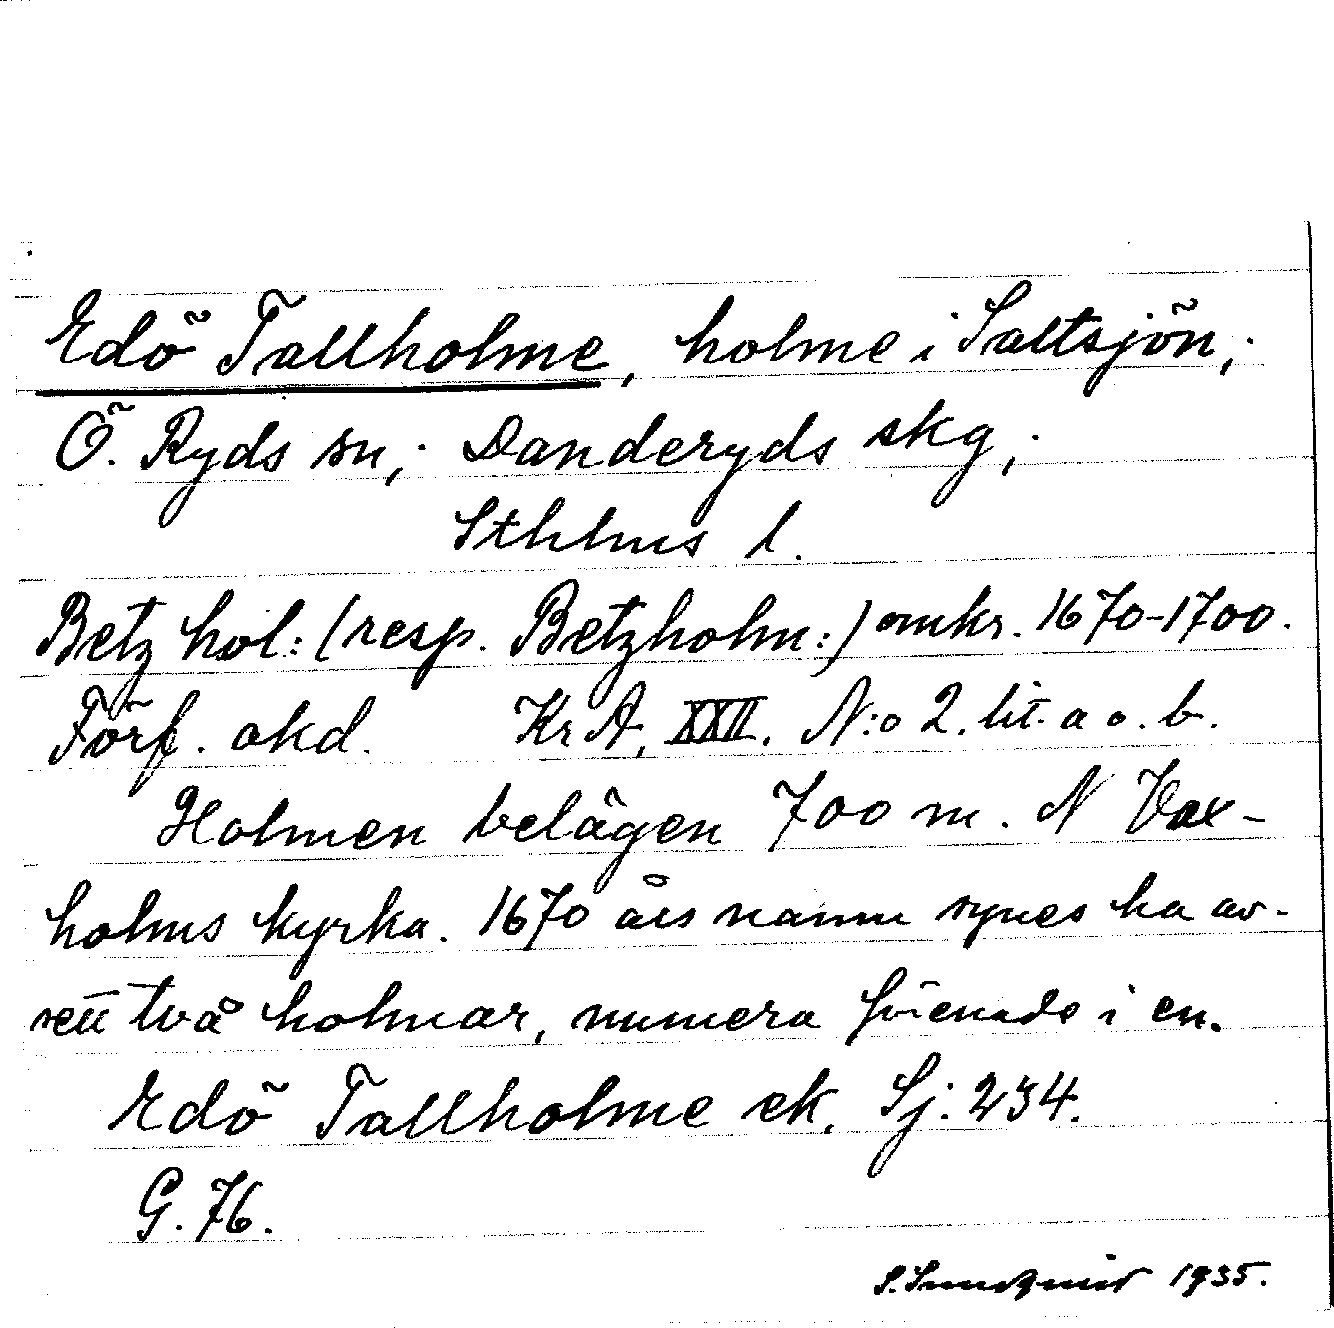 Edö Tallholme, holme i Saltsjön;
Ö. Ryds sn; Danderyds skg;
Sthlms l.
Betz hol: (resp. Betzholm:) omkr. 1670-1700.
Förf. okd. Kr A, XXII. N:o 2. lit. a o. b.
Holmen belägen 700 m. N Vax-
holms kyrka. 1670 års namn synes ha av-
sett två holmar, numera förenade i en.
Edö Tallholme ek. Sj. 234.
G. 76.
S. Sundquist 1935.